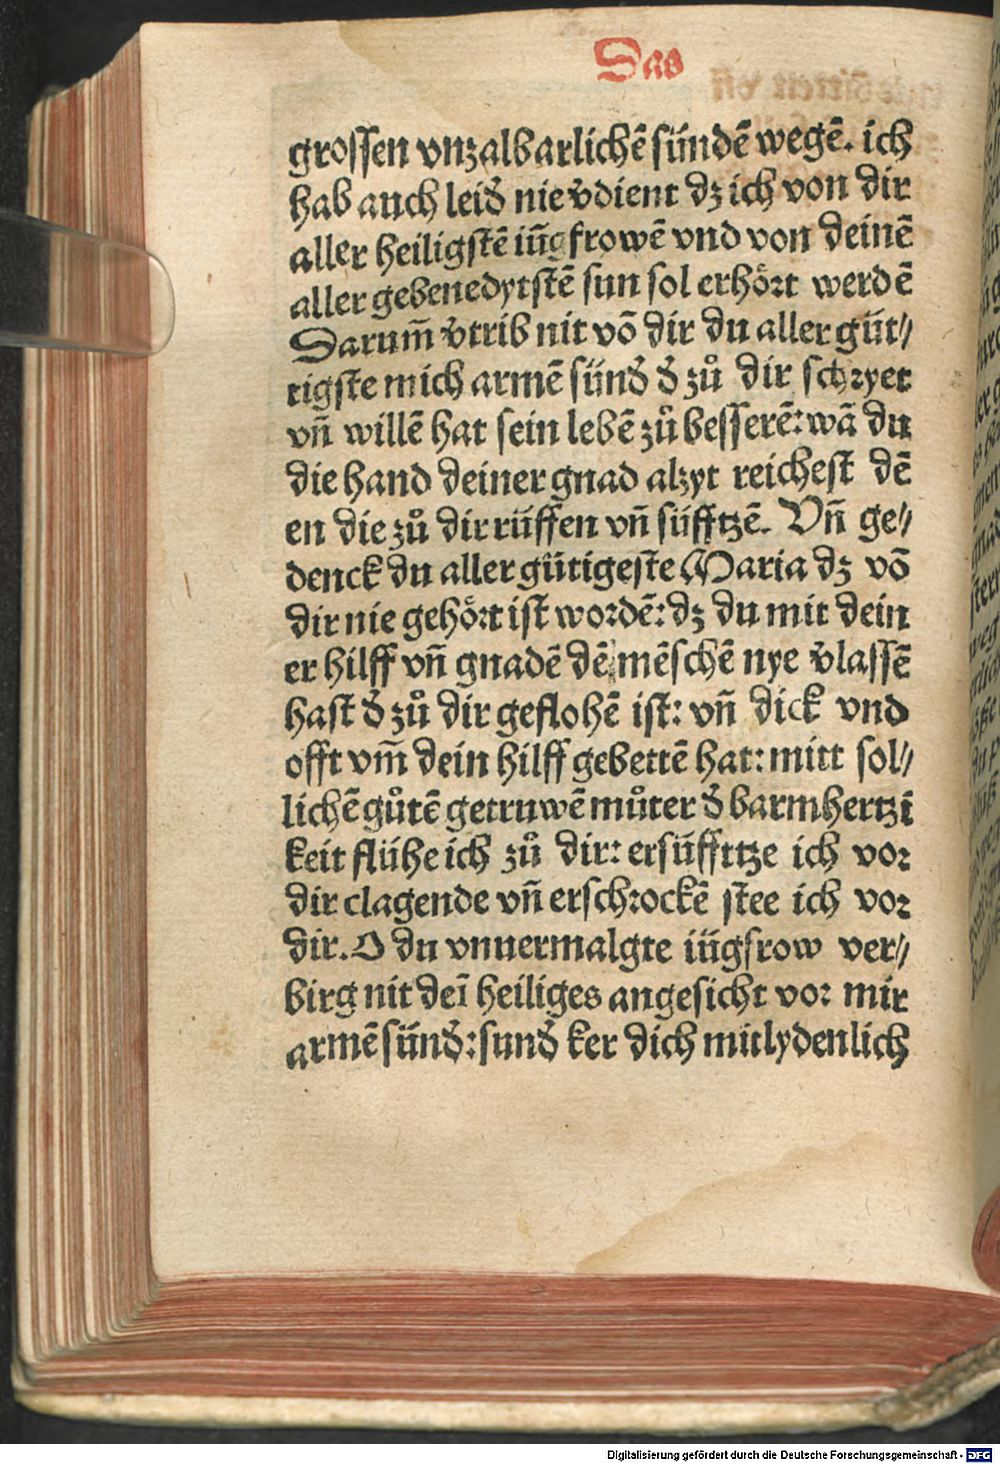 Das
grossen vnzalbarlichē sündē wegē. ich
hab auch leid̛ nie v̛dient dz ich von dir
aller heiligstē iūgfrowē vnd von deinē
aller gebenedytstē sun sol erhört werdē
Darum̄ v̛trib nit vō dir du aller güt//
tigste mich armē sünd̛ d̛ zů dir schryet
vn̄ willē hat sein lebē zů besserē: wā du
die hand deiner gnad alzyt reichest dē
en die zů dir rüffen vn̄ süfftzē. Vn̄ ge//
denck du aller gütigeste Maria dz vō
dir nie gehört ist wordē: dz du mit dein
er hilff vn̄ gnadē dē mēschē nye v̛lassē
hast d̛ zů dir geflohē ist: vn̄ dick vnd
offt vm̄ dein hilff gebettē hat: mitt sol//
lichē gůtē getruwē můter d̛ barmhertzi
keit flühe ich zů dir: ersüfftze ich vor
dir clagende vn̄ erschrockē stee ich vor
dir. O du vnuermalgte iügsrow ver//
birg nit deī heiliges angesicht vor mir
armē sünd̛: sund̛ ker dich mitlydenlich
Digitalisierung gefördert durch die Deutsche Forschungsgemeinschaft - DFG